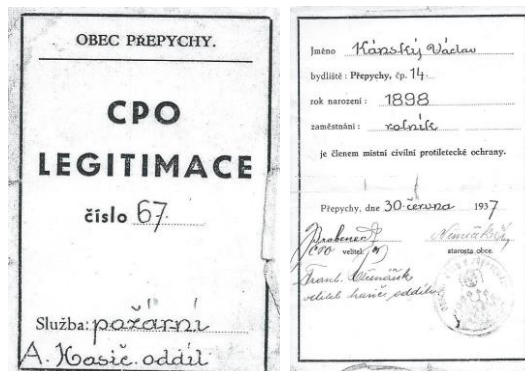 OBEC PŘEPYCHY.
CPO
LEGITIMACE
číslo 67.
Služba: požární
A. Hasič. oddíl
Jméno Kánský Václav
bydliště: Přepychy, čp. 14.
rok narození: 1898
zaměstnání: rolník
je členem místní civilní protiletecké ochrany.
Přepychy, dne 30. června 1937
CPO velitel
starosta obce.
Frant.
velitel hasič. oddílu